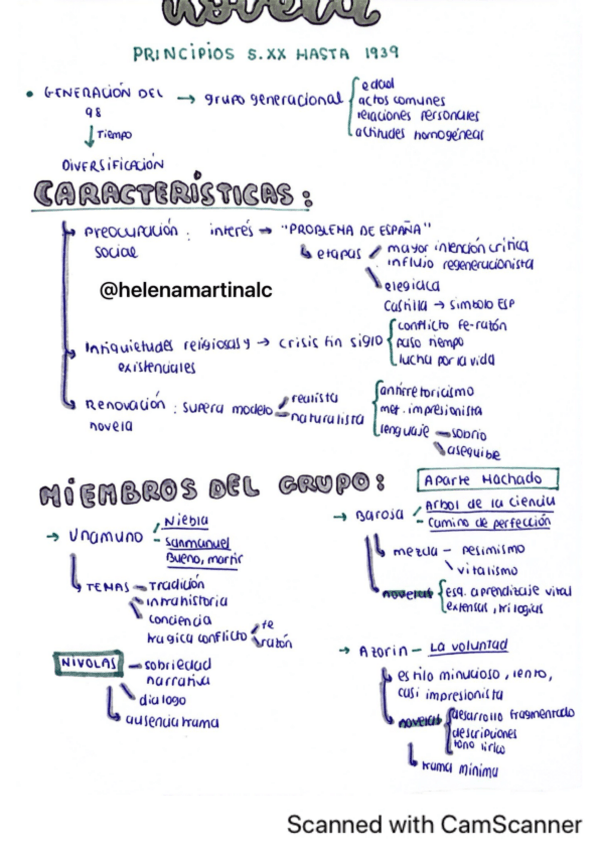 novela
PRINCIPIOS S.XX HASTA 1939
• GENERACIÓN DEL 98 → grupo generacional
edad
actos comunes
relaciones personales
actitudes homogéneas
↓ Tiempo
DIVERSIFICACIÓN
CARACTERÍSTICAS:
Preocupación social : interés → "PROBLEMA DE ESPAÑA"
↳ etapas
mayor intención crítica
influjo regeneracionista
elegiaca
Castilla → símbolo ESP
@helenamartinalc
Inquietudes religiosas y existenciales → crisis fin siglo
conflicto fe-razón
paso tiempo
lucha por la vida
Renovación novela : supera modelo
realista
naturalista
antirretoricismo
met. impresionista
lenguaje
sobrio
asequible
MIEMBROS DEL GRUPO:
Aparte Machado
→ Unamuno
Niebla
San manuel
Bueno, martir
↳ TEMAS
Tradición
intrahistoria
conciencia
tragica conflicto
fe
razón
NIVOLAS
sobriedad
narrativa
dialogo
ausencia trama
→ Baroja
Arbol de la Ciencia
Camino de perfección
mezcla
pesimismo
vitalismo
novelas
esq. aprendizaje vital
extensas, trilogías
→ Azorín - La voluntad
estilo minucioso, lento,
casi impresionista
novelas
desarrollo fragmentado
descripciones
tono lírico
trama mínima
Scanned with CamScanner